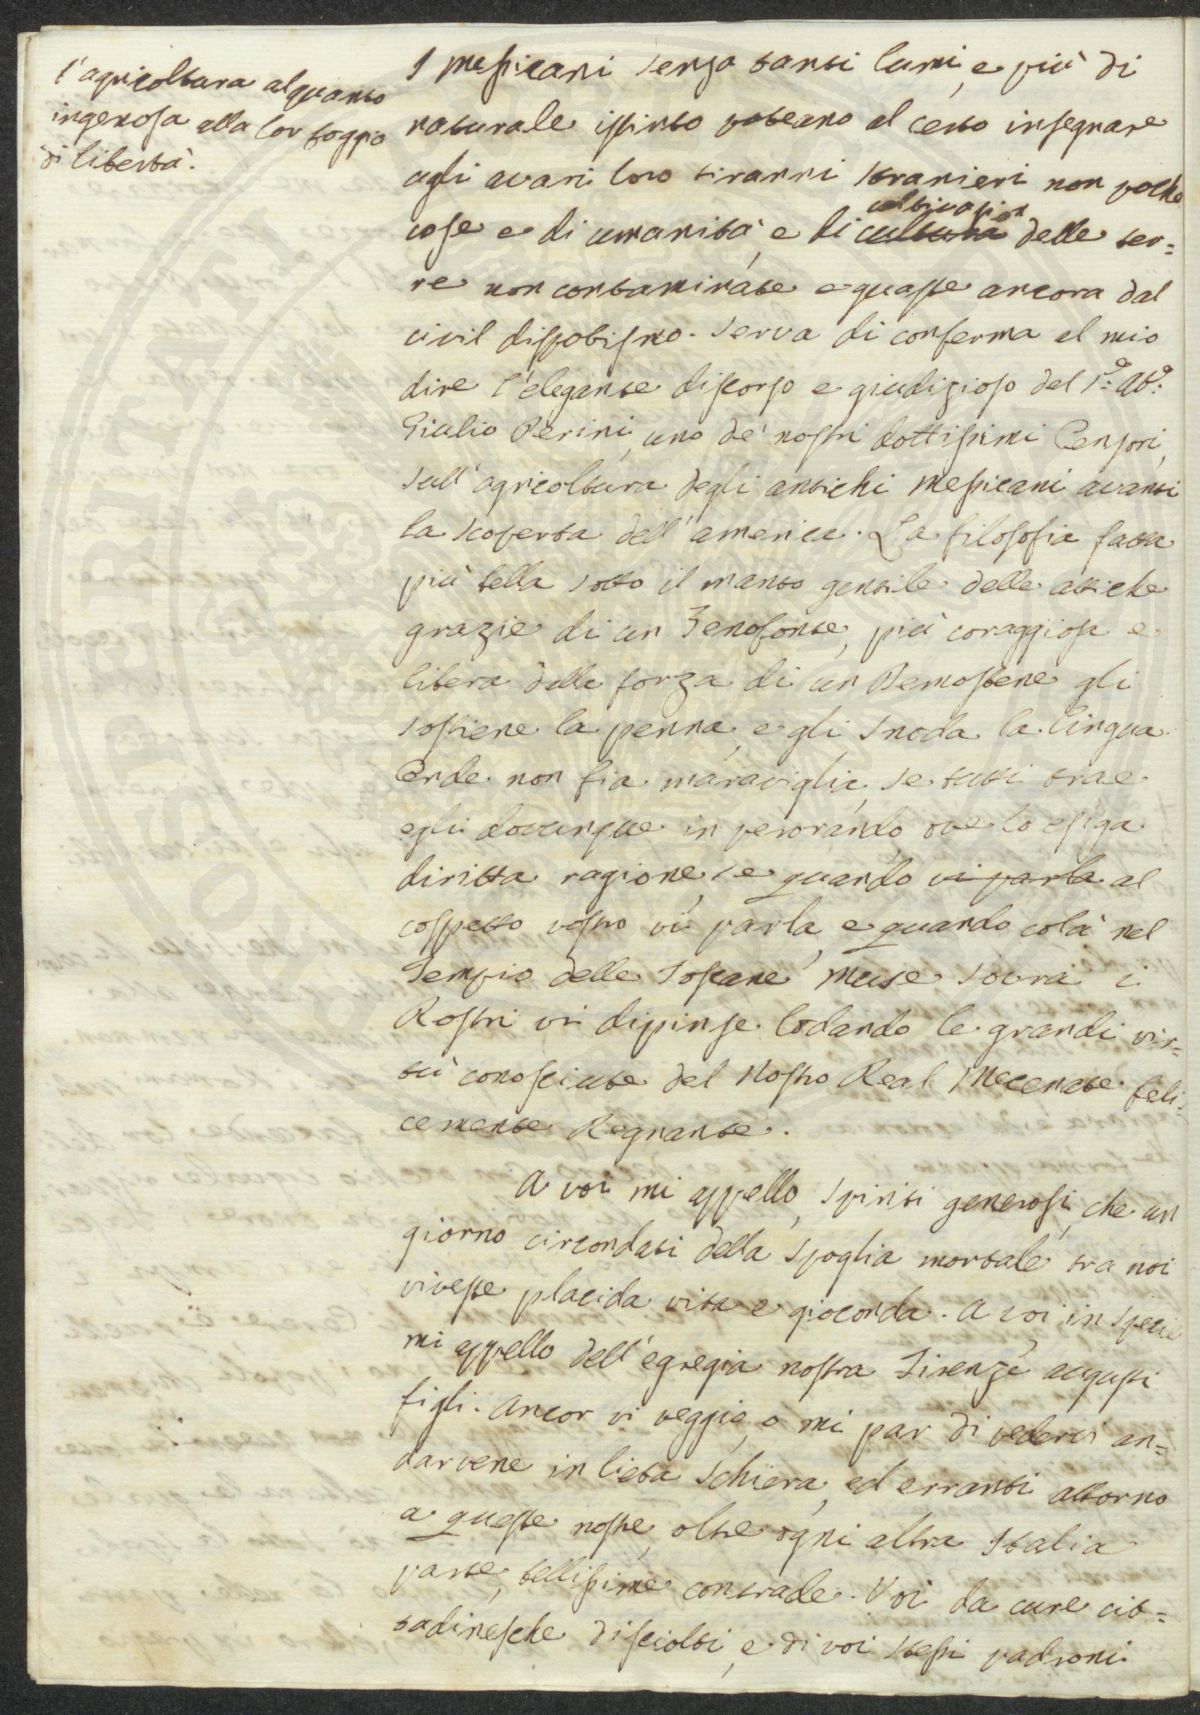 l'agricoltura alquanto
ingenosa alla lor foggia
di libertà.
I messicani senza tanti lumi, e più di
naturale istinto poteano al certo insegnare
agli avari loro tiranni stranieri non poche
cose e di umanità, e di cultura coltivazion delle ter=
re non contaminate e guaste ancora dal
civil dispotismo. Serva di conferma al mio
dire l'elegante discorso e giudizioso del Sr. Abe.
Giulio Perini, uno de' nostri dottissimi Censori,
sull'agricoltura degli antichi Messicani avanti
la scoperta dell'america. La filosofia fatta
più bella sotto il manto gentile delle attiche
grazie di un Senofonte, più coraggiosa e
libera dalla forza di un Demostene gli
sostiene la penna, e gli snoda la lingua.
Onde non fia maraviglia, se tutti trae
egli dovunque in perorando, ove lo esiga
diritta ragione, se quando vi parla al
cospetto vostro vi parla, e quando colà nel
Tempio delle Toscane Muse sovra i
Rostri vi dipinse lodando le grandi vir=
tù conosciute del Nostro Real Mecenate feli=
cemente Regnante.
A voi mi appello, spiriti generosi, che un
giorno circondati della spoglia mortale tra noi
viveste placida vita e gioconda. A voi in specie
mi appello dell'egregia nostra Firenze augusti
figli. Ancor vi veggio, o mi par di vedervi an=
darvene in lieta schiera, ed erranti attorno
a queste nostre, oltre ogni altra Italia
parte, bellissime contrade. Voi da cure cit=
tadinesche disciolti, e di voi stessi padroni